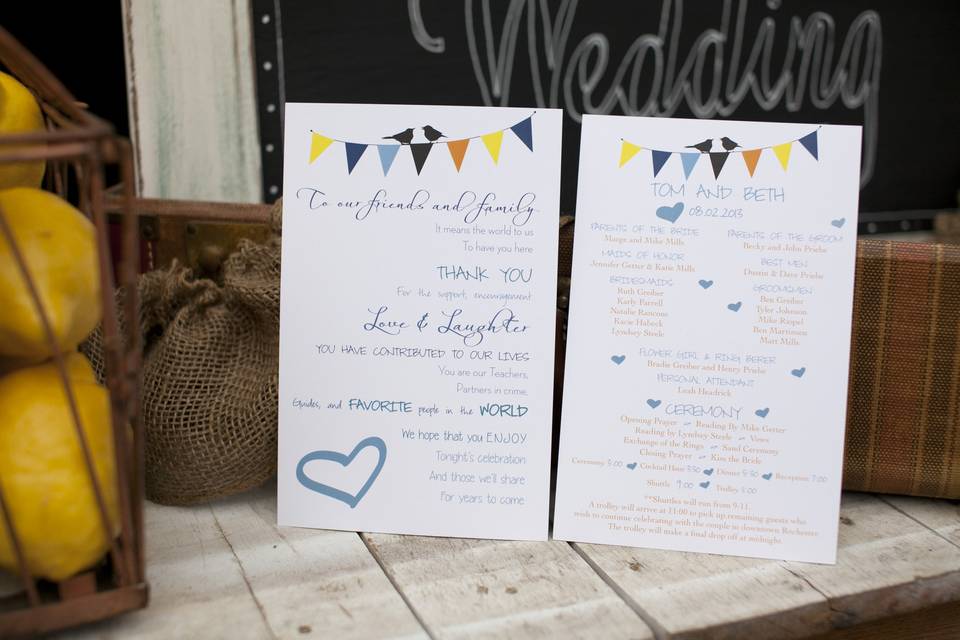 Wedding
To our friends and family
It means the world to us
To have you here
THANK YOU
For the support, encouragement
Love & Laughter
YOU HAVE CONTRIBUTED TO OUR LIVES
You are our Teachers,
Partners in crime,
Guides, and FAVORITE people in the WORLD
We hope that you ENJOY
Tonight's celebration
And those we'll share
For years to come
TOM AND BETH
08.02.2013
PARENTS OF THE BRIDE
Marge and Mike Mills
MAIDS OF HONOR
Jennifer Getter & Katie Mills
BRIDESMAIDS
Ruth Greiber
Karly Farrell
Natalie Ranconi
Kacie Habeck
Lyndsey Steele
PARENTS OF THE GROOM
Becky and John Priebe
BEST MEN
Dustin & Dave Priebe
GROOMSMEN
Ben Greiber
Tyler Johnson
Mike Riopel
Ben Martinson
Matt Mills
FLOWER GIRL & RING BERER
Bradie Greiber and Henry Priebe
PERSONAL ATTENDANT
Leah Headrick
CEREMONY
Opening Prayer ~ Reading By Mike Getter
Reading by Lyndsey Steele ~ Vows
Exchange of the Rings ~ Sand Ceremony
Closing Prayer ~ Kiss the Bride
Ceremony 3:00 Cocktail Hour 3:30 Dinner 5:30 Reception 7:00
Shuttle 9:00 Trolley 11:00
**Shuttles will run from 9-11.
A trolley will arrive at 11:00 to pick up remaining guests who
wish to continue celebrating with the couple in downtown Rochester
The trolley will make a final drop off at midnight.